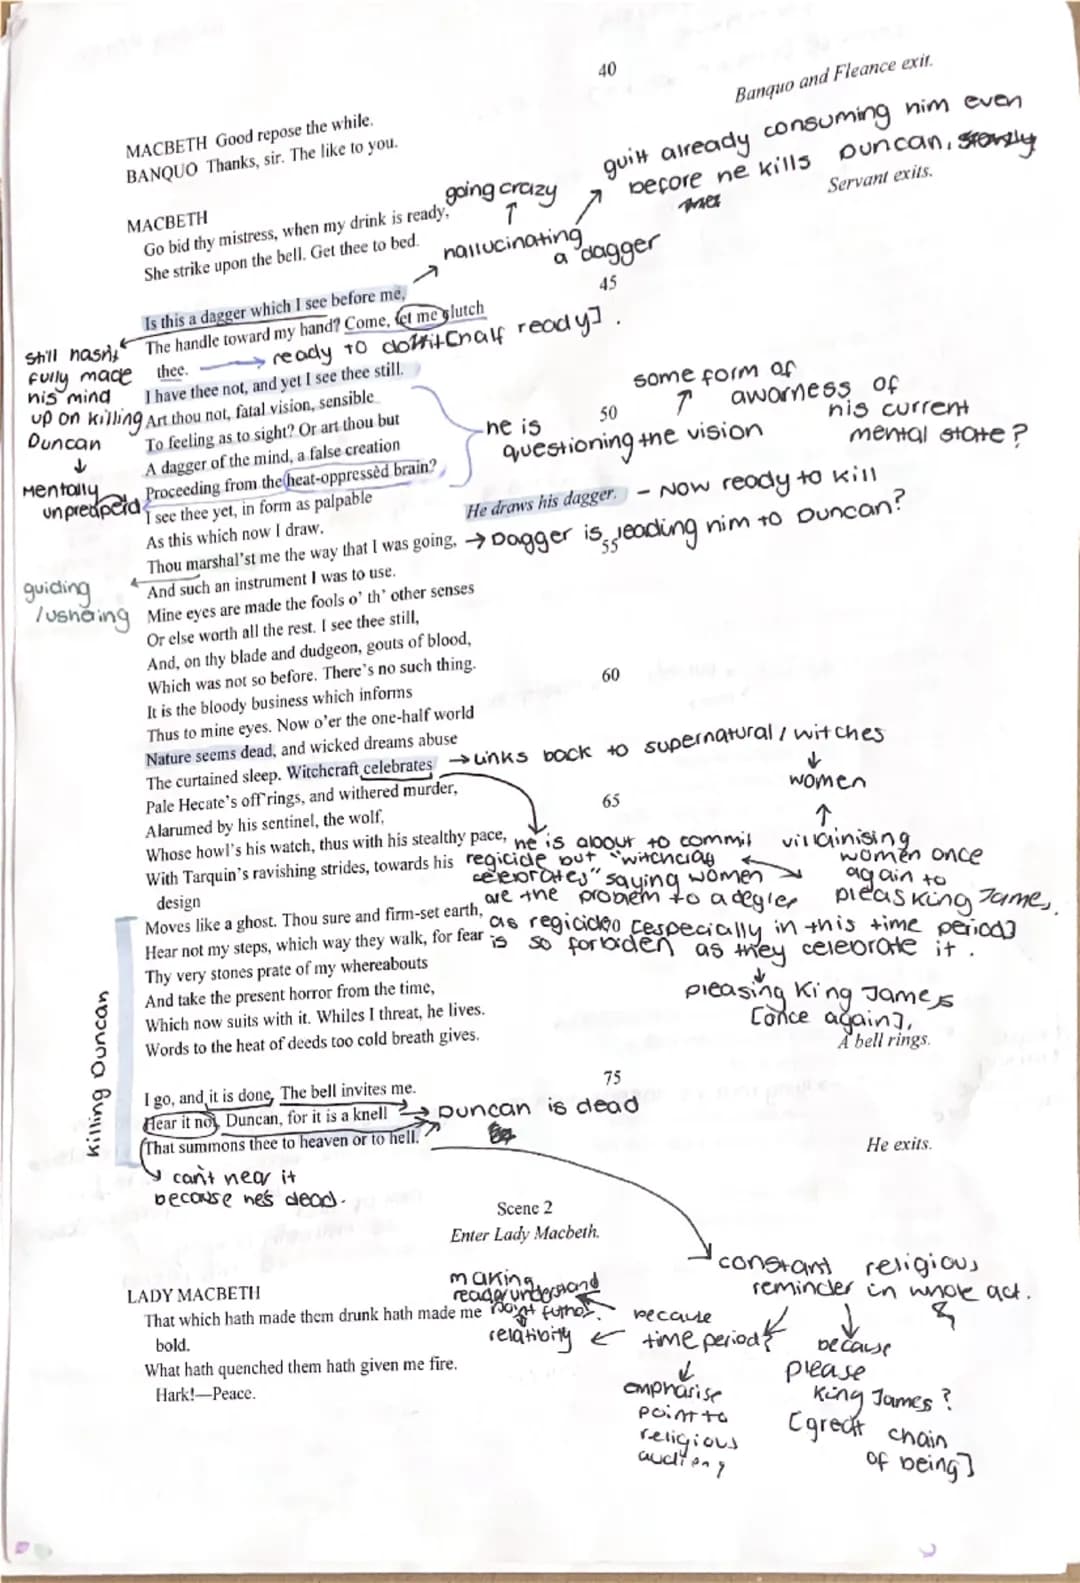 40
Banquo and Fleance exit.
MACBETH Good repose the while.
BANQUO Thanks, sir. The like to you.
guilt already consuming him even
before he kills Duncan,
Servant exits.
going crazy
MACBETH
Go bid thy mistress, when my drink is ready,
She strike upon the bell. Get thee to bed.
hallucinating
a dagger
45
Is this a dagger which I see before me,
The handle toward my hand? Come, let me clutch
thee.
ready to do it [half ready].
still hasn't
fully made
his mind
up on killing
Duncan
↓
Mentally
unpreaperd
I have thee not, and yet I see thee still.
Art thou not, fatal vision, sensible
To feeling as to sight? Or art thou but
A dagger of the mind, a false creation
Proceeding from the heat-oppressèd brain?
50
he is
questioning the vision
some form of
awarness of
his current
mental state?
I see thee yet, in form as palpable
As this which now I draw.
He draws his dagger. - Now ready to kill
Thou marshal'st me the way that I was going, → Dagger is leading him to Duncan?
55
guiding
/ushering
And such an instrument I was to use.
Mine eyes are made the fools o' th' other senses
Or else worth all the rest. I see thee still,
And, on thy blade and dudgeon, gouts of blood,
Which was not so before. There's no such thing.
60
It is the bloody business which informs
Thus to mine eyes. Now o'er the one-half world
Nature seems dead, and wicked dreams abuse
The curtained sleep. Witchcraft celebrates → Links back to supernatural / witches
↓
women
↑
villainising
women once
again to
pleas King James,
Pale Hecate's off'rings, and withered murder,
65
Alarumed by his sentinel, the wolf,
Whose howl's his watch, thus with his stealthy pace,
With Tarquin's ravishing strides, towards his
design
he is about to commit
regicide but "witchcraft
celebrates" saying women
are the problem to a degree
as regicide [especially in this time period]
is so forbiden as they celebrate it.
↓
pleasing King James
[once again],
Moves like a ghost. Thou sure and firm-set earth,
Hear not my steps, which way they walk, for fear
Thy very stones prate of my whereabouts
And take the present horror from the time,
Which now suits with it. Whiles I threat, he lives.
Words to the heat of deeds too cold breath gives.
A bell rings.
75
Killing Duncan
I go, and it is done. The bell invites me.
Hear it not, Duncan, for it is a knell → Duncan is dead
That summons thee to heaven or to hell.
He exits.
can't hear it
because he's dead.
Scene 2
Enter Lady Macbeth.
constant religious
reminder in whole act.
LADY MACBETH
That which hath made them drunk hath made me
bold.
What hath quenched them hath given me fire.
Hark!—Peace.
making
reader understand
point
relatibity
because
time period?
↓
empharise
point to
religious
because
please
King James?
[great chain
of being]